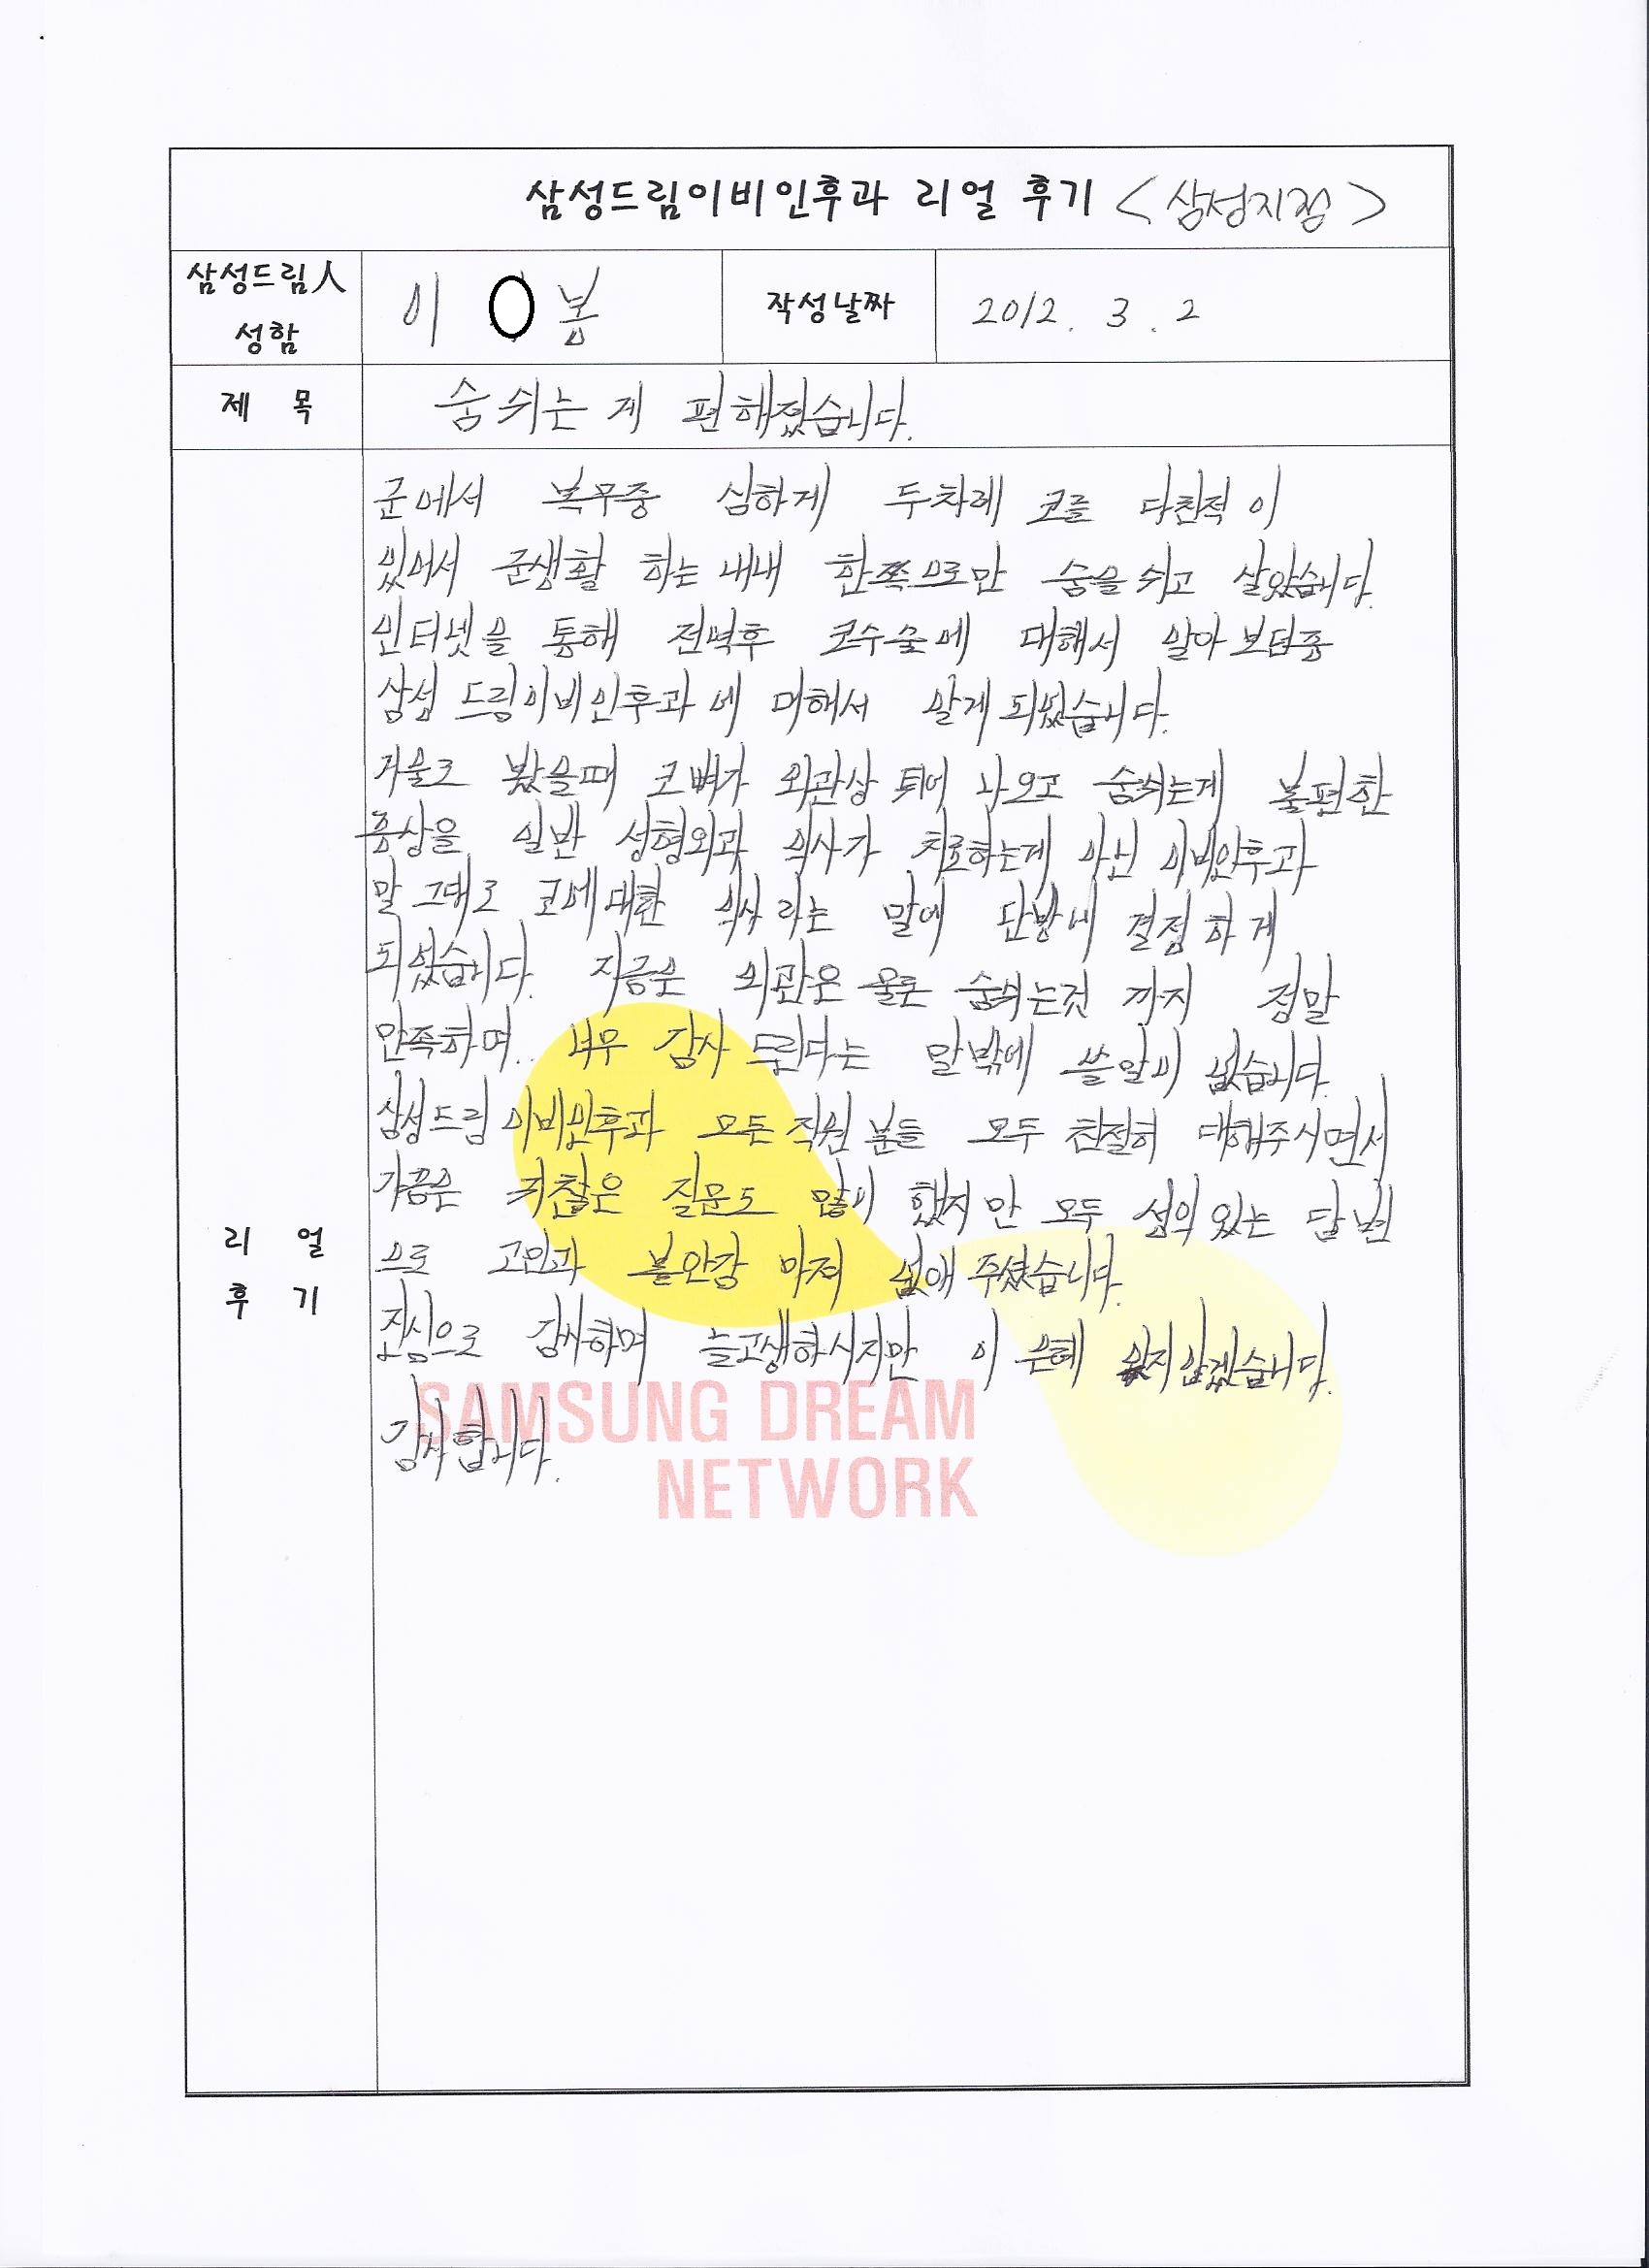 삼성드림이비인후과 리얼 후기 <삼성지점>
삼성드림人 성함
이 O 봄
작성날짜
2012. 3. 2
제 목
숨쉬는 게 편해졌습니다.
군에서 복무중 심하게 두차례 코를 다친적이
있어서 군생활 하는내내 한쪽으로만 숨을쉬고 살았습니다.
인터넷을 통해 전역후 코수술에 대해서 알아보던중
삼성 드림이비인후과에 대해서 알게되었습니다.
거울로 봤을때 코뼈가 외관상 튀어 나오고 숨쉬는게 불편한
증상을 일반 성형외과 의사가 치료하는게 아닌 이비인후과
말 그대로 코에대한 의사라는 말에 단방에 결정하게
되었습니다. 지금은 외관은 물론 숨쉬는것 까지 정말
만족하며.. 너무 감사 드린다는 말밖에 쓸말이 없습니다.
삼성드림 이비인후과 모든직원 분들 모두 친절히 대해주시면서
가끔은 귀찮은 질문도 많이 했지만 모두 성의있는 답변
으로 고민과 불안감 마저 없애 주셨습니다.
진심으로 감사하며 늘고생하시지만 이 은혜 잊지않겠습니다.
감사합니다.
리 얼
후 기
SAMSUNG DREAM
NETWORK